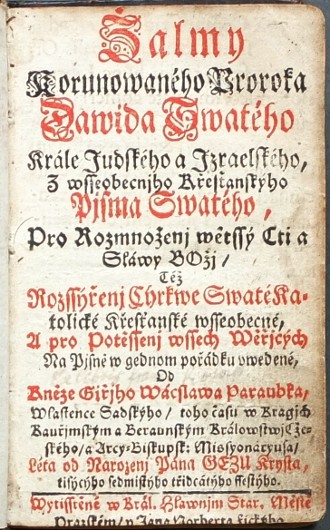 Žalmy
Korunowaného Proroka
Dawida Swatého
Krále Judského a Izraelského,
Z wsseobecnjho Křestanskýho
Pjsma Swatého,
Pro Rozmnoženj wětssý Cti a
Sláwy BOžj/
Též
Rozssýřenj Chrkwe Swaté Ka-
tolické Křestanské wsseobecné,
A pro Potěssenj wssech Wěřjcých
Na Pjsně w gednom pořádku uwedené,
Od
Kněze Giřjho Wácslawa Paraubka,
Wlastence Sadskýho/ toho času w Kragjch
Kauřjmským a Beraunským Králowstwj Cze-
ského/ a Arcy-Biskupsk: Missyonaryusa/
Léta od Narozenj Pána GEZU Krysta,
tisýcýho sedmistýho třidcátýho ssestýho.
Wytisstěné w Král. Hlawnjm Star. Městě
Pražském/ u Jana Norberta